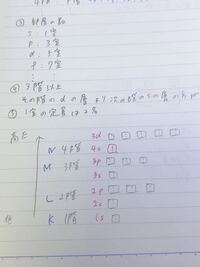 ③ 部屋の数
s : 1室
p : 3室
d : 5室
f : 7室
④ 3階以上
その階のdの層より次の階のsの層の方が
⑤ 1室の定員は2名
高E
3d
N 4階 4s 1
M 3階 3p
3s
L 2階 2p
2s
低 K 1階 1s